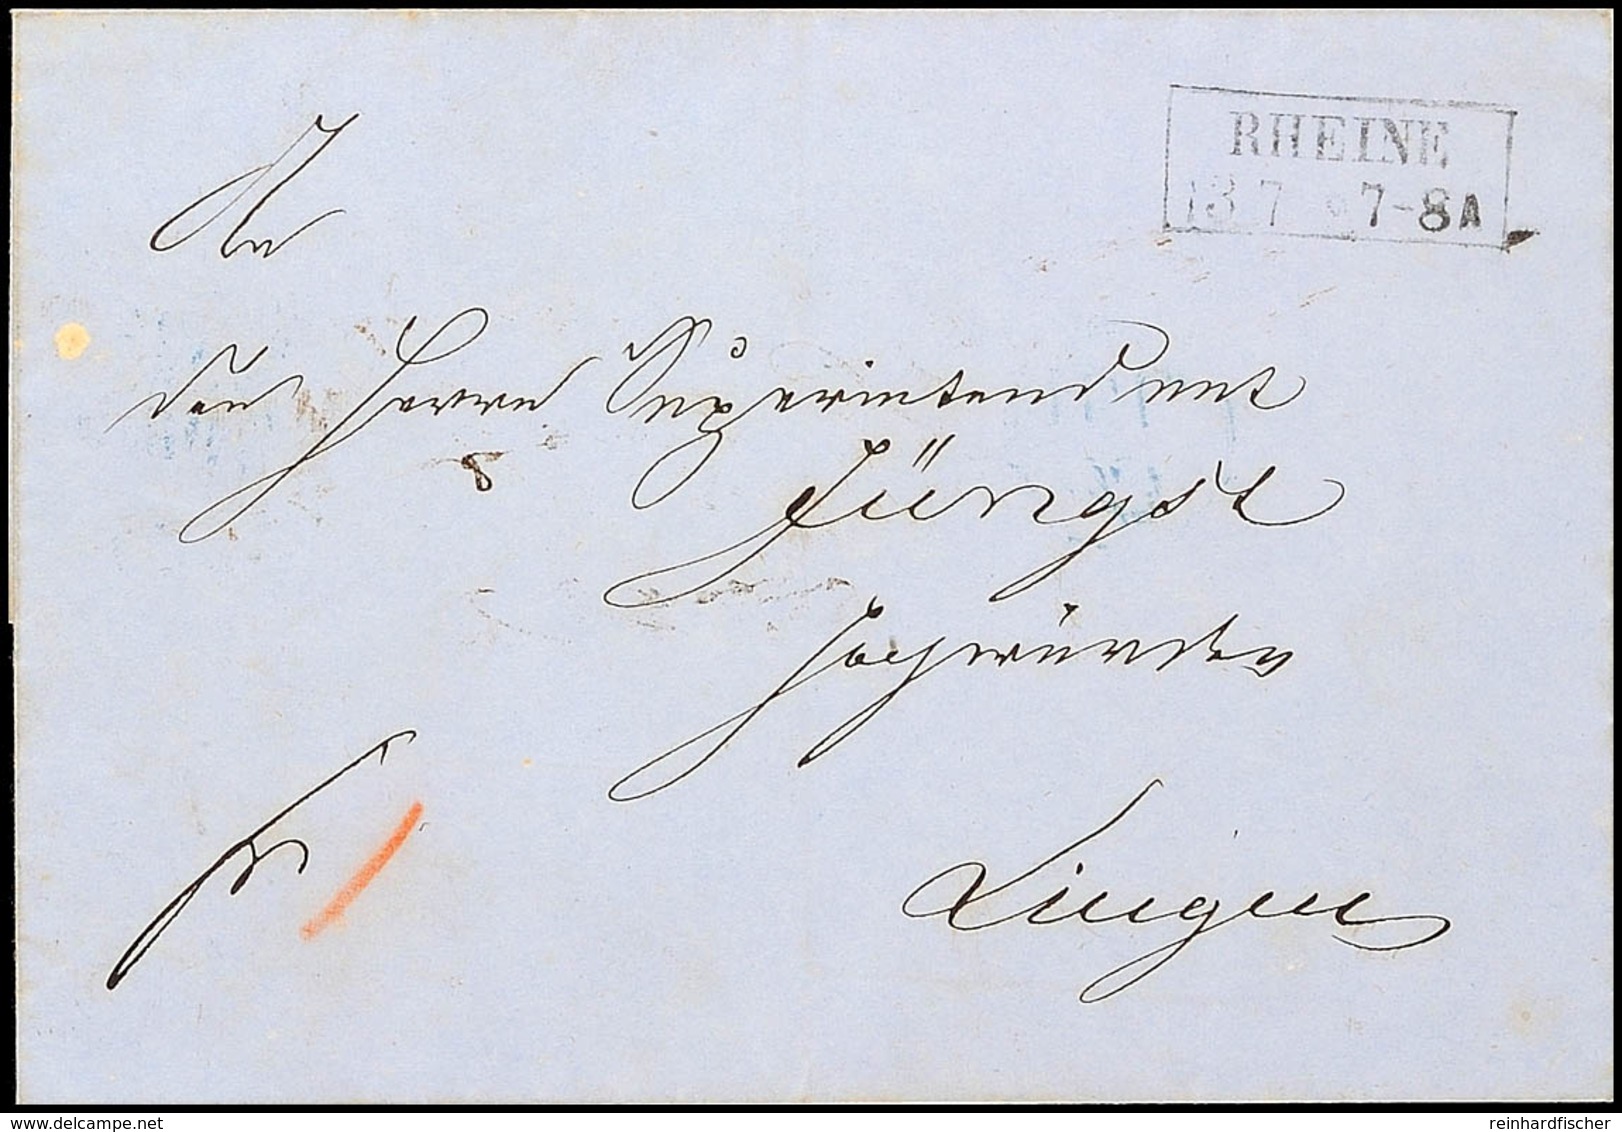 RHEINE
13 7 7-8 A
An
den Herrn Superintendent
Jüngst
Hochwürden
fr
Lingen
delcampe.net
reinhardfischer